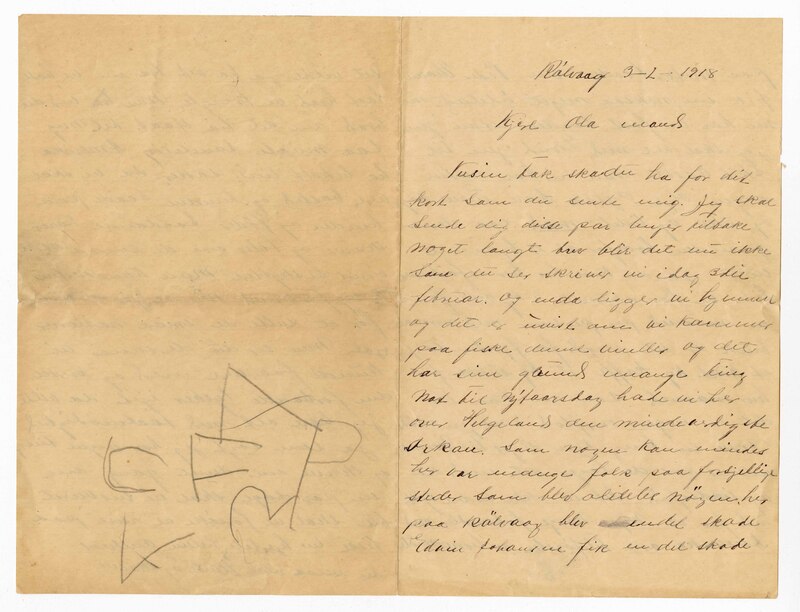 Kålvaag 3-2-1918
Kjere Ola mand
Tusin tak skadu ha for det
kort som du sente mig. Jeg skal
sende dig disse par linjer tilbake
noget langt brev blir det nu ikke
som du ser skriver vi idag 3die
februar. og enda ligger vi hjemme
og det er uvist om vi kommer
paa fiske denne vinter og det
har sine grund mange ting
Nat til Nytaarsdag hade vi her
over Helgeland den mindeverdigste
Orkan. Som nogen kan mindes
her var mange folk paa forsjellige
steder som blev aldeles her
paa Kålvaag blev endel skade
Edvin Johansen fik en del skade